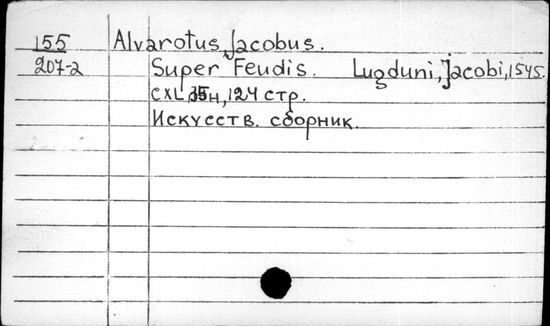 155 Alvarotus, Jacobus.
207-2 Super Feudis. Lugduni, Jacobi, 1545.
CXL 124 стр.
Искусств. сборник.